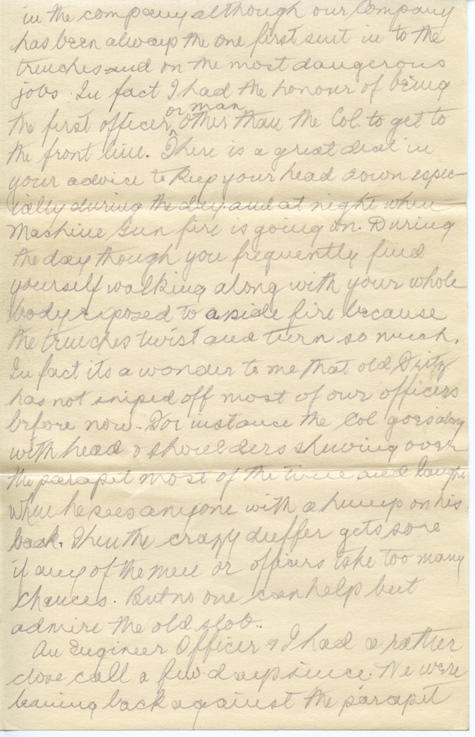 in the company although our Company
has been always the one first sent in to the
trenches and on the most dangerous
jobs. In fact I had the honour of being
or man
the first officer, other than the Col. to get to
the front line. There is a great deal in
your advice to keep your head down espec-
ially during the day and at night when
Machine Gun fire is going on. During
the day though you frequently find
yourself walking along with your whole
body exposed to a side fire because
the trenches twist and turn so much.
In fact its a wonder to me that old Dirty
has not sniped off most of our officers
before now - For instance the Col goes along
with head & shoulders showing over
the parapit most of the time and laughs
when he sees anyone with a hump on his
back. Then the crazy duffer gets sore
if any of the men or officers take too many
chances. But no one can help but
admire the old slob.
An Engineer Officer & I had a rather
close call a few days since. We were
leaning back against the parapit